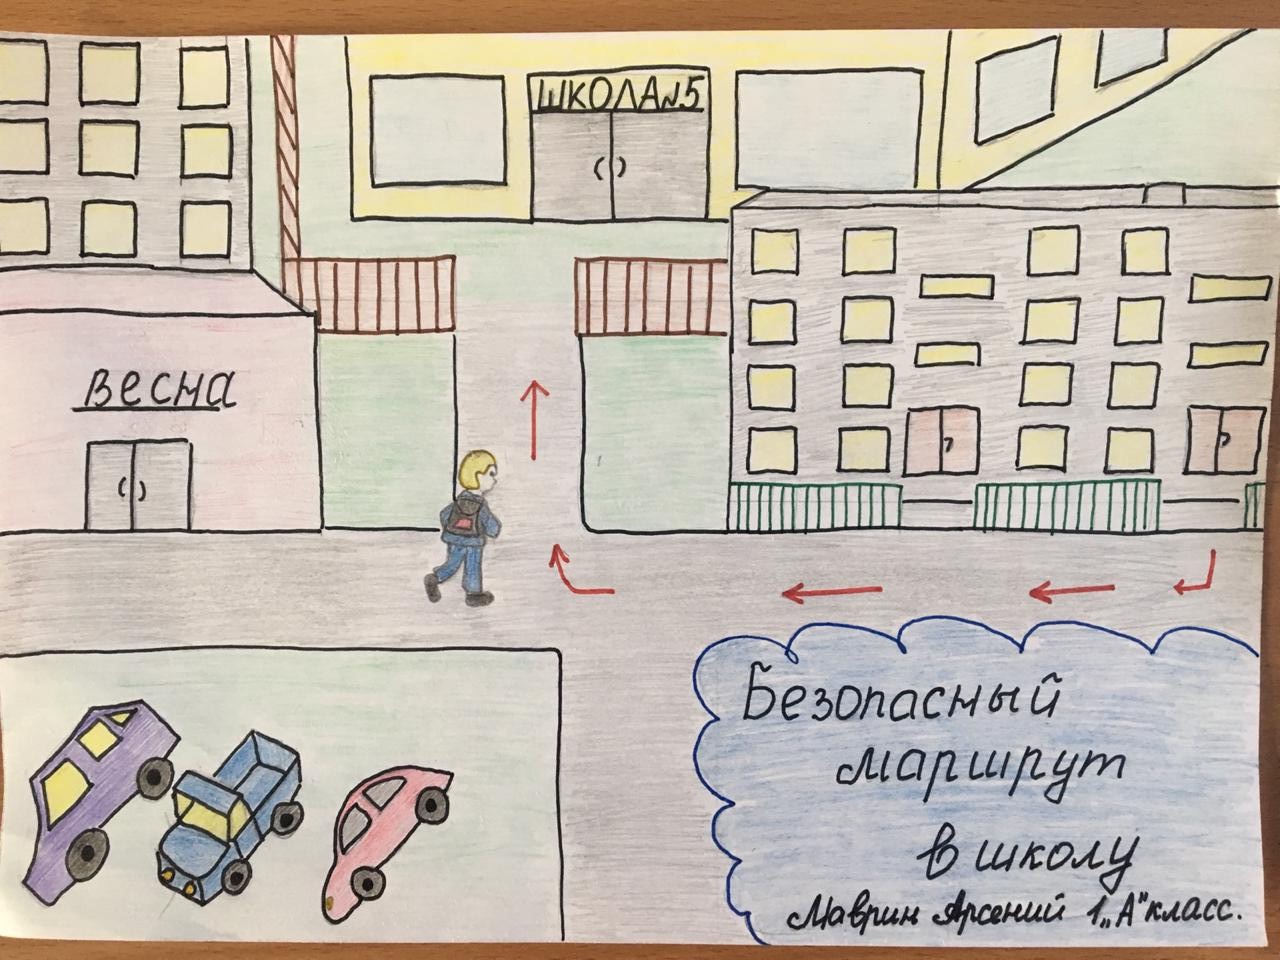 ШКОЛА№5
весна
Безопасный
маршрут
в школу
Маврин Арсений 1„А" класс.